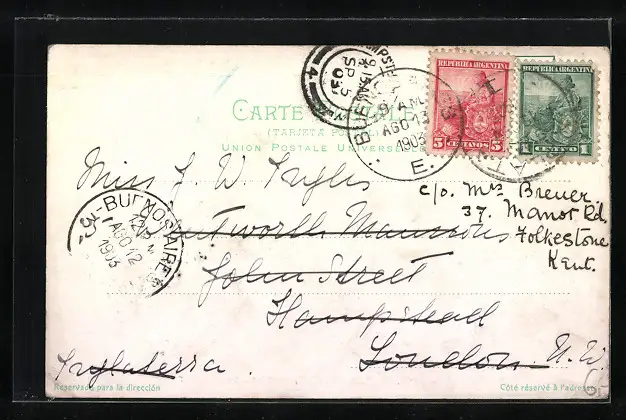 REPUBLICA ARGENTINA
5 CENTAVOS 5
REPUBLICA ARGENTINA
1 CENTAVO 1
CARTE POSTALE
(TARJETA POSTAL)
UNION POSTALE UNIVERSELLE
HAMPSTEAD
9.15AM
SP 5
03
4
BUENOS AIRES
9 A.M.
AGO 13
1903
E.
BUENOS AIRES
12
AGO 12
1903
Miss J W Ingles
Wentworth Mansions
John Street
Hampstead
London N. W.
Inglaterra.
c/o. Mrs Breuer
37. Manor Rd,
Folkestone
Kent.
Reservado para la dirección
Côté réservé à l'adresse